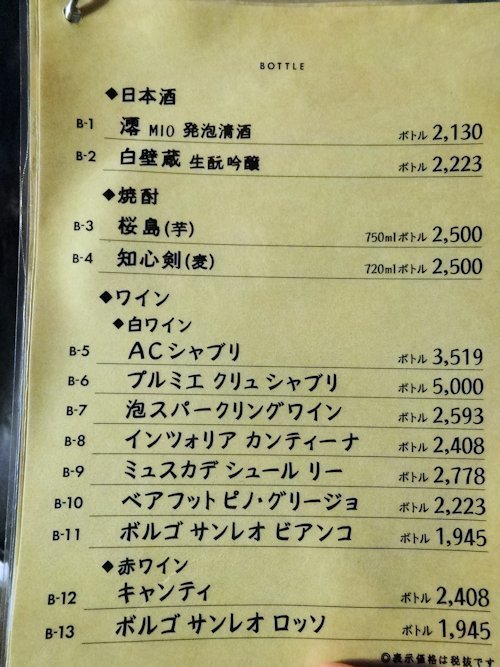 BOTTLE
◆日本酒
B-1 澪 MIO 発泡清酒 ボトル 2,130
B-2 白壁蔵 生酛吟醸 ボトル 2,223
◆焼酎
B-3 桜島(芋) 750mlボトル 2,500
B-4 知心剣(麦) 720mlボトル 2,500
◆ワイン
◆白ワイン
B-5 ACシャブリ ボトル 3,519
B-6 プルミエ クリュ シャブリ ボトル 5,000
B-7 泡スパークリングワイン ボトル 2,593
B-8 インツォリア カンティーナ ボトル 2,408
B-9 ミュスカデ シュール リー ボトル 2,778
B-10 ベアフット ピノ・グリージョ ボトル 2,223
B-11 ボルゴ サンレオ ビアンコ ボトル 1,945
◆赤ワイン
B-12 キャンティ ボトル 2,408
B-13 ボルゴ サンレオ ロッソ ボトル 1,945
◎表示価格は税抜です